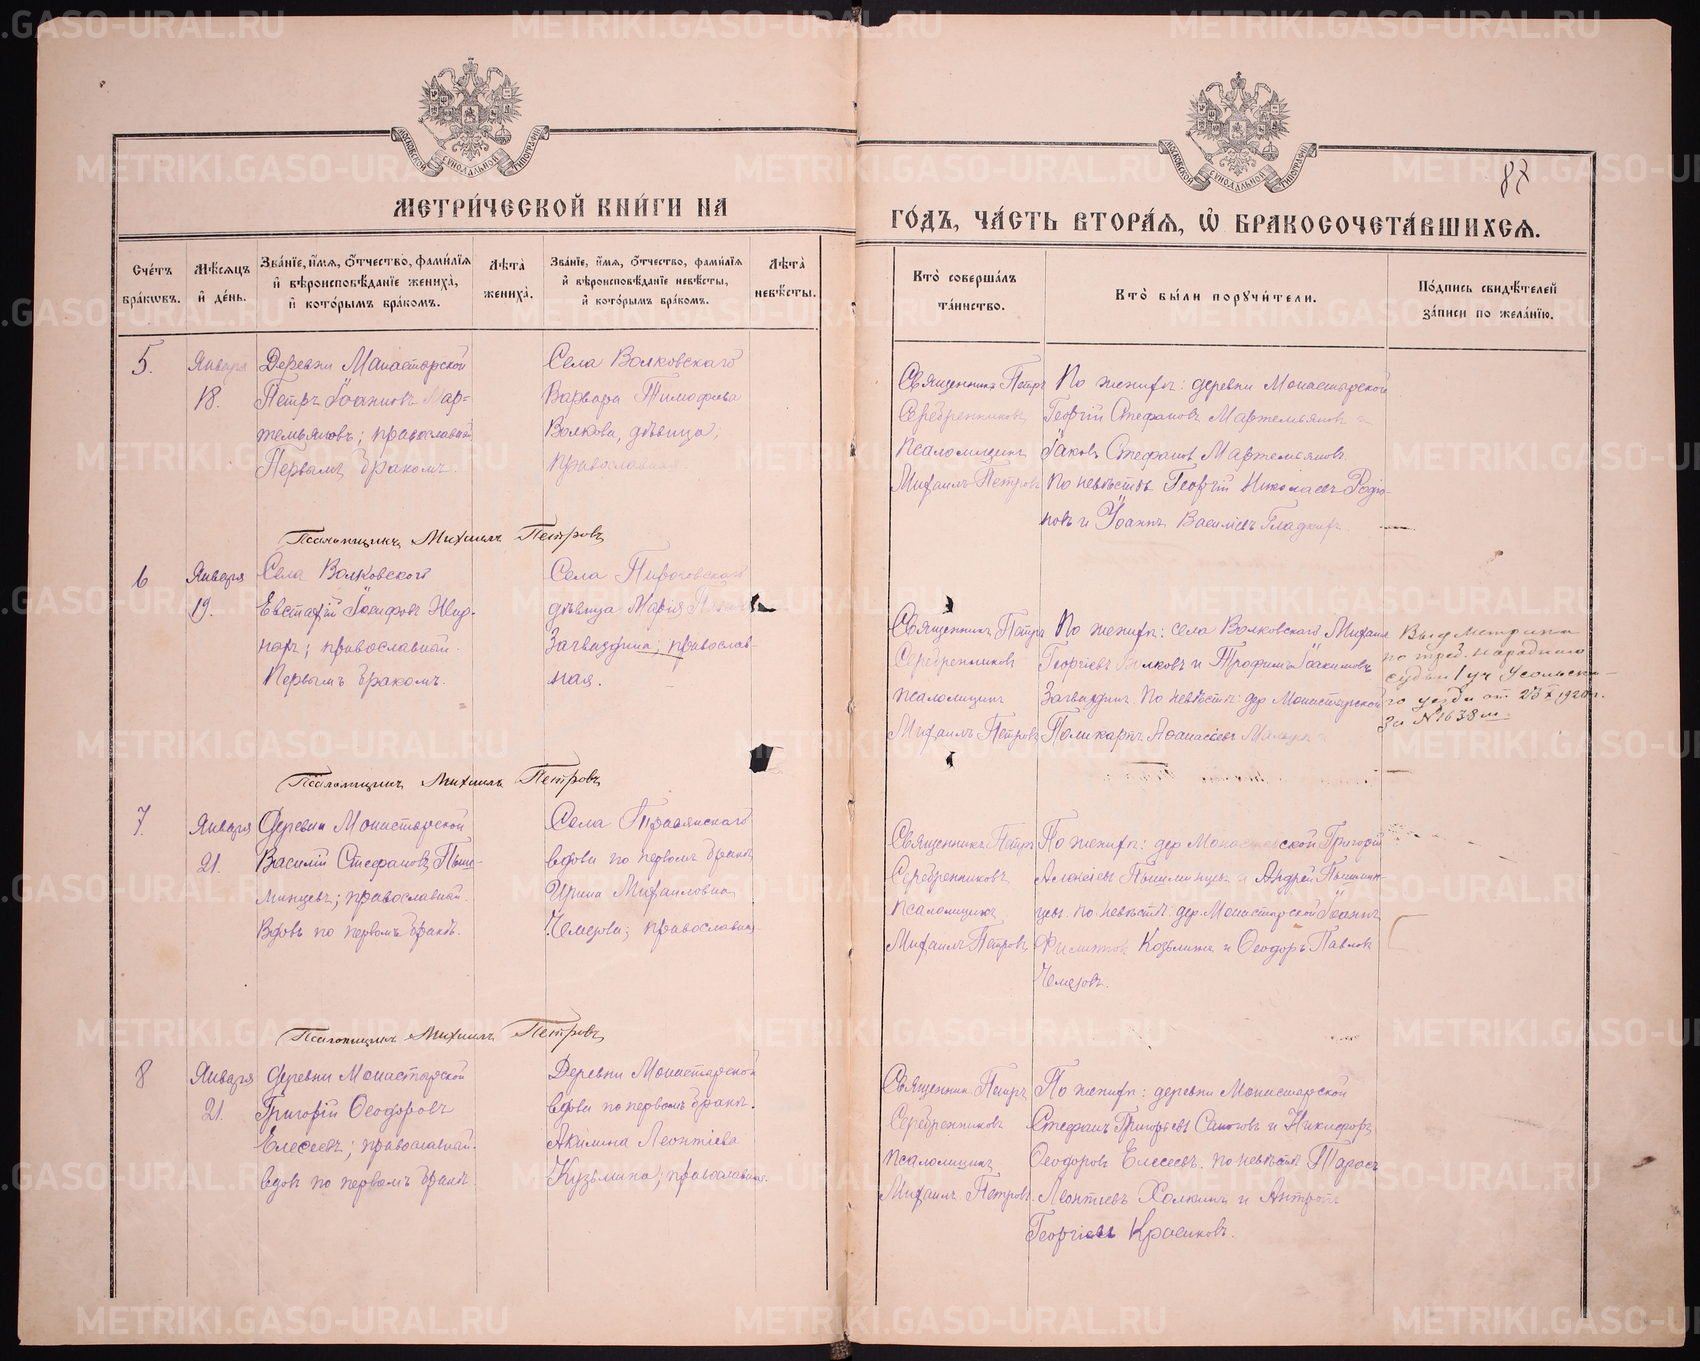 МЕТРИЧЕСКОЙ КНИГИ НА
ГОДЪ, ЧАСТЬ ВТОРАЯ, Ѡ БРАКОСОЧЕТАВШИХСЯ.
МОСКОВСКОЙ СѴНОДАЛЬНОЙ ТИПОГРАФІИ
МОСКОВСКОЙ СѴНОДАЛЬНОЙ ТИПОГРАФІИ
Счетъ браковъ.
Мѣсяцъ и день.
Званіе, имя, отчество, фамилія
и вѣроисповѣданіе жениха,
и которымъ бракомъ.
Лѣта
жениха.
Званіе, имя, отчество, фамилія
и вѣроисповѣданіе невѣсты,
и которымъ бракомъ.
Лѣта
невѣсты.
Кто совершалъ
таинство.
Кто были поручители.
Подпись свидѣтелей
записи по желанію.
5.
Января
18.
Деревни Монастырской
Петръ Іоанновъ Мар-
темьяновъ; православный
Первымъ бракомъ.
Села Волковскаго
Варвара Тимофѣева
Волкова, дѣвица;
православная.
Священникъ Петръ
Серебренниковъ
псаломщикъ
Михаилъ Петровъ
По женихѣ: деревни Монастырской
Георгій Стефановъ Мартемьяновъ и
Іаковъ Стефановъ Мартемьяновъ.
По невѣстѣ Георгій Николаевъ Родіо-
новъ и Іоаннъ Василіевъ Гладкихъ.
Псаломщикъ Михаилъ Петровъ
6
Января
19.
Села Волковского
Евстафій Іосифовъ
православный.
Первымъ бракомъ.
Села
дѣвица Марія
Загвоздина; православ-
ная.
Священникъ Петръ
Серебренниковъ
псаломщикъ
Михаилъ Петровъ
По женихѣ: села Волковскаго Михаилъ
Георгіевъ Волковъ и Трофимъ Іоакимовъ
Загвоздинъ. По невѣстѣ: дер. Монастырской
Поликарпъ Аѳанасіевъ
Выд. метрика
по треб. народного
судьи 1 уч. Усольско-
го уезда от 25/X 1920 г.
за № 1638
Псаломщикъ Михаилъ Петровъ
7.
Января
21.
Деревни Монастырской
Василій Стефановъ Пыш-
минцевъ; православный.
Вдовъ по первомъ бракѣ.
Села Травянскаго
вдова по первомъ бракѣ
Ирина Михаиловна
Чемезова; православная
Священникъ Петръ
Серебренниковъ
псаломщикъ
Михаилъ Петровъ
По женихѣ: дер. Монастырской Григорій
Алексіевъ Пышминцевъ и Андрей Пышмин-
цевъ. по невѣстѣ: дер. Монастырской Іоаннъ
Филиппов Козьминъ и Ѳеодоръ Павловъ
Чемезовъ.
Псаломщикъ Михаилъ Петровъ
8
Января
21.
Деревни Монастырской
Григорій Ѳеодоровъ
Елесеевъ; православный.
вдовъ по первомъ бракѣ
Деревни Монастырской
вдова по первомъ бракѣ.
Акилина Леонтіева
Кузьмина; православная.
Священникъ Петръ
Серебренниковъ
псаломщикъ
Михаилъ Петровъ.
По женихѣ: деревни Монастырской
Стефанъ Григорьевъ и Никифоръ
Ѳеодоровъ Елесеевъ. по невѣстѣ Тарасъ
Леонтіевъ и Антропъ
Георгіевъ Красиковъ.
METRIKI.GASO-URAL.RU